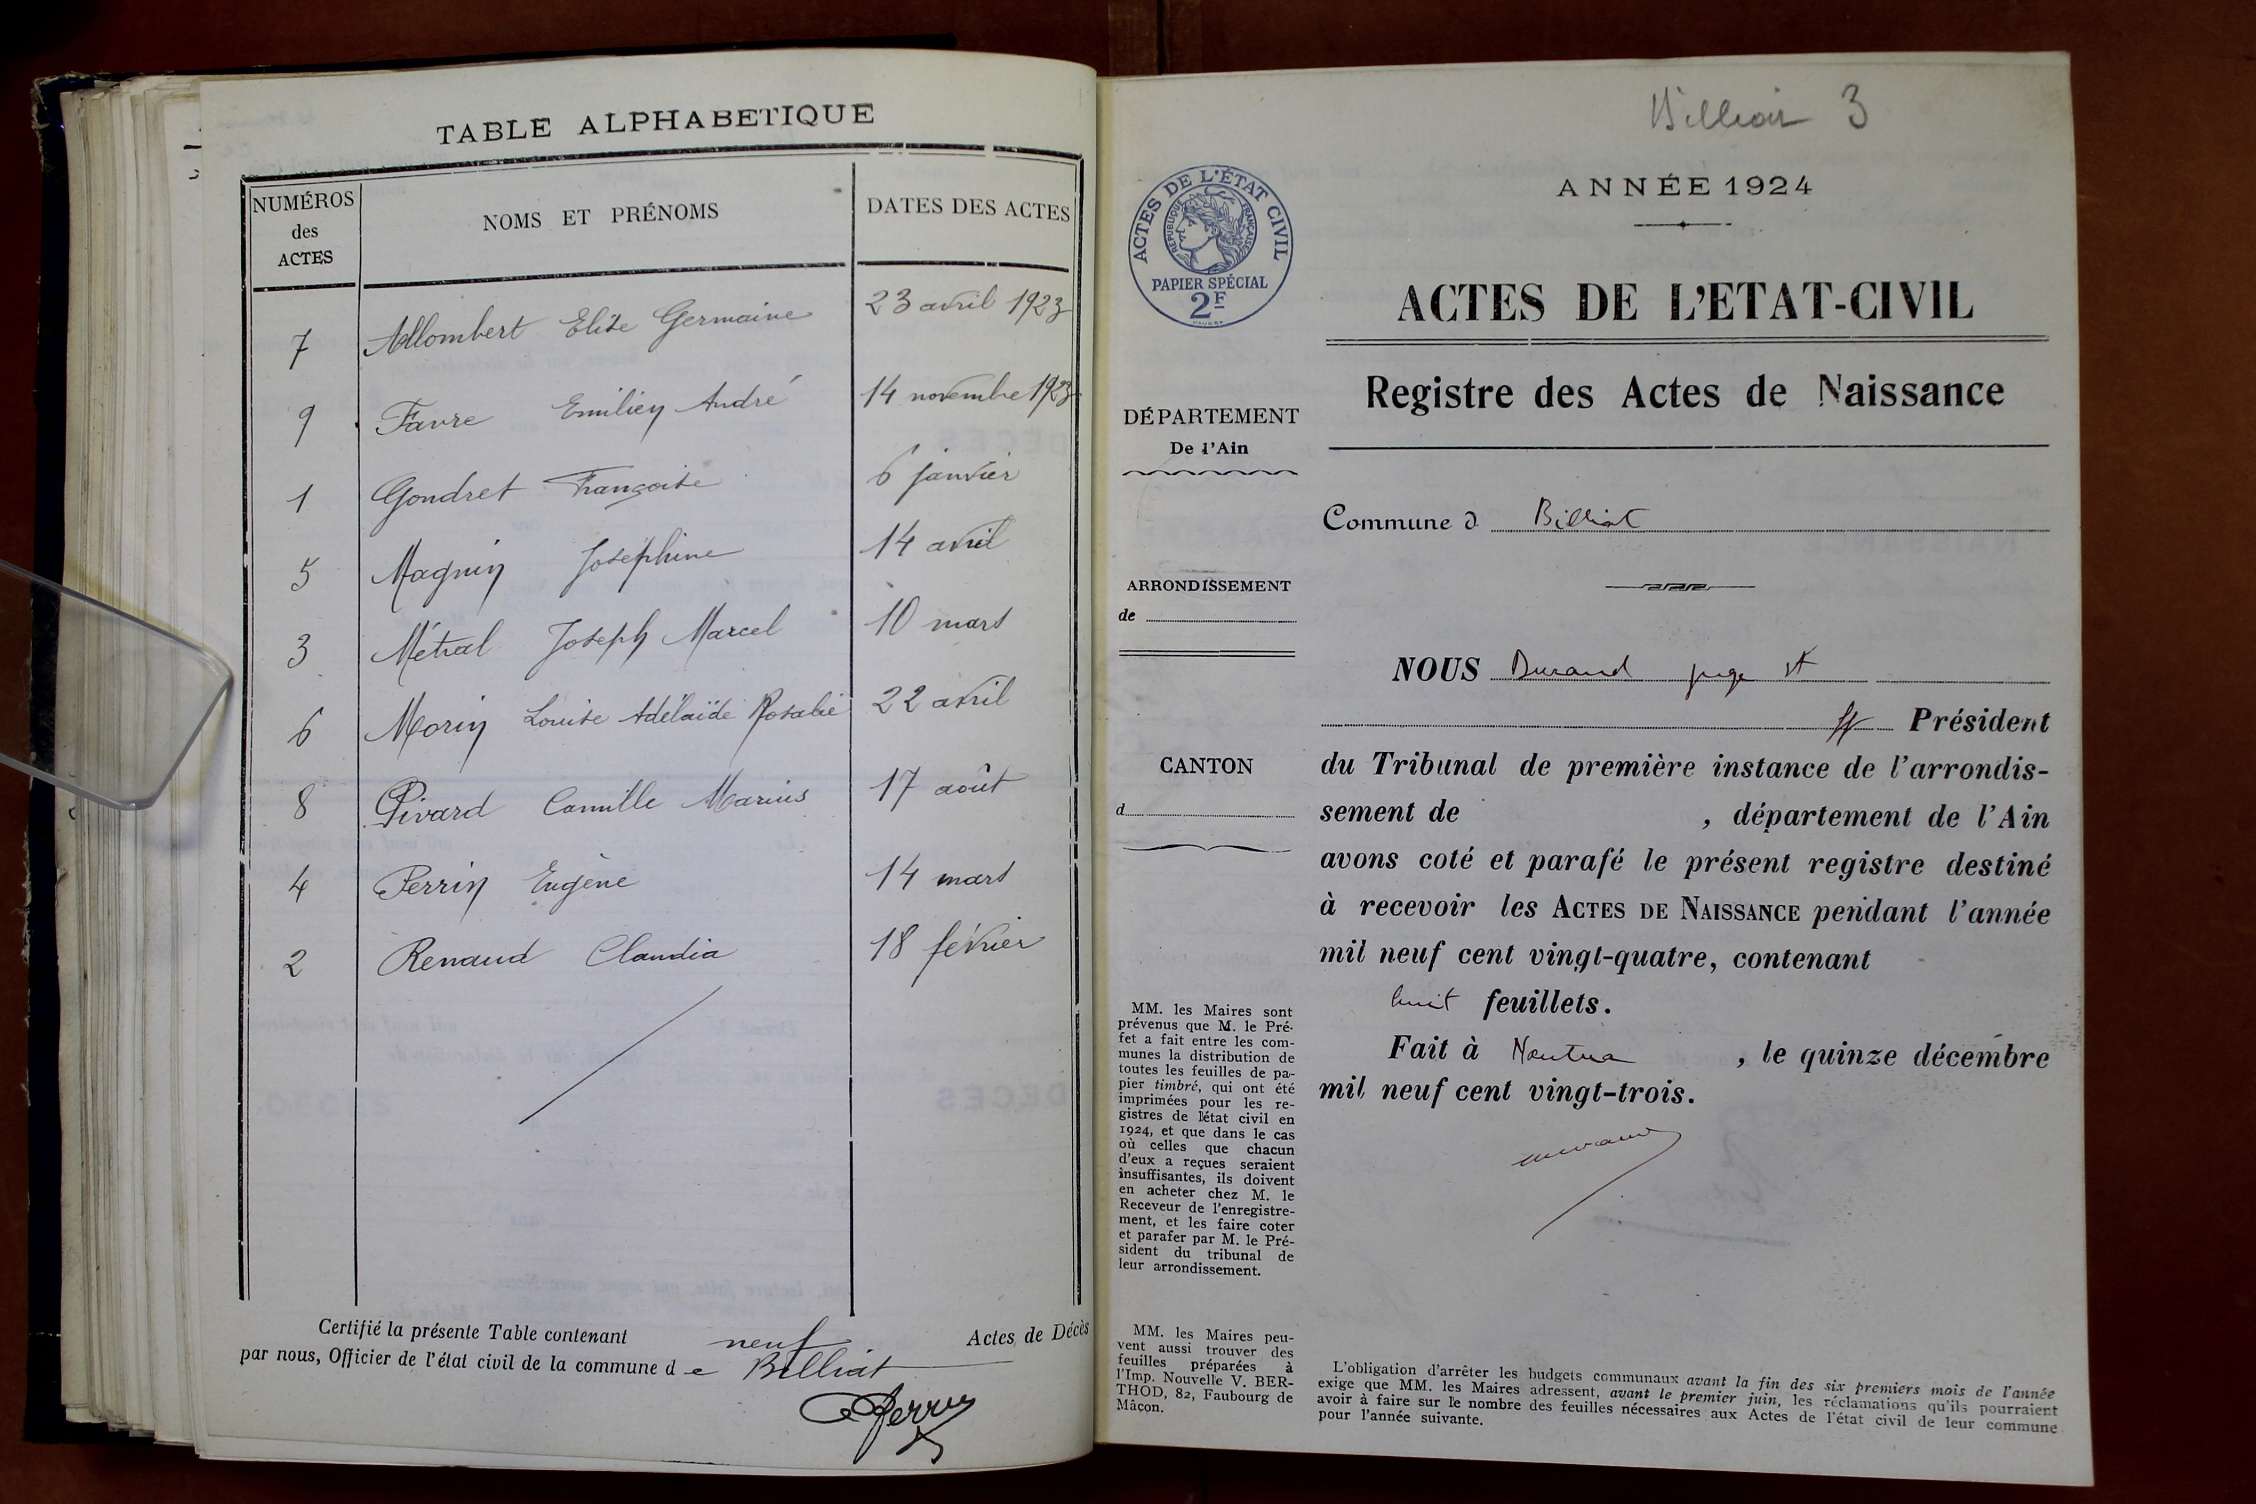 TABLE ALPHABETIQUE
NUMÉROS des ACTES
NOMS ET PRÉNOMS
DATES DES ACTES
7 Allombert Elise Germaine 23 avril 1923
9 Favre Emilien André 14 novembre 1923
1 Gondret Françoise 6 janvier
5 Magnin Joséphine 14 avril
3 Métral Joseph Marcel 10 mars
6 Morin Louise Adélaïde Rosalie 22 avril
8 Pivard Camille Marius 17 août
4 Perrin Eugène 14 mars
2 Renaud Claudia 18 février
Certifié la présente Table contenant neuf Actes de Décès
par nous, Officier de l'état civil de la commune d e Billiat
Billiat 3
ACTES DE L'ÉTAT CIVIL
RÉPUBLIQUE FRANÇAISE
PAPIER SPÉCIAL
2F
ANNÉE 1924
ACTES DE L'ETAT-CIVIL
Registre des Actes de Naissance
DÉPARTEMENT
De l'Ain
ARRONDISSEMENT
de
CANTON
d
MM. les Maires sont
prévenus que M. le Pré-
fet a fait entre les com-
munes la distribution de
toutes les feuilles de pa-
pier timbré, qui ont été
imprimées pour les re-
gistres de l'état civil en
1924, et que dans le cas
où celles que chacun
d'eux a reçues seraient
insuffisantes, ils doivent
en acheter chez M. le
Receveur de l'enregistre-
ment, et les faire coter
et parafer par M. le Pré-
sident du tribunal de
leur arrondissement.
MM. les Maires peu-
vent aussi trouver des
feuilles préparées à
l'Imp. Nouvelle V. BER-
THOD, 82, Faubourg de
Mâcon.
Commune d Billiat
NOUS Durand juge st
ff Président
du Tribunal de première instance de l'arrondis-
sement de , département de l'Ain
avons coté et parafé le présent registre destiné
à recevoir les ACTES DE NAISSANCE pendant l'année
mil neuf cent vingt-quatre, contenant
huit feuillets.
Fait à Nantua , le quinze décembre
mil neuf cent vingt-trois.
L'obligation d'arrêter les budgets communaux avant la fin des six premiers mois de l'année
exige que MM. les Maires adressent, avant le premier juin, les réclamations qu'ils pourraient
avoir à faire sur le nombre des feuilles nécessaires aux Actes de l'état civil de leur commune
pour l'année suivante.